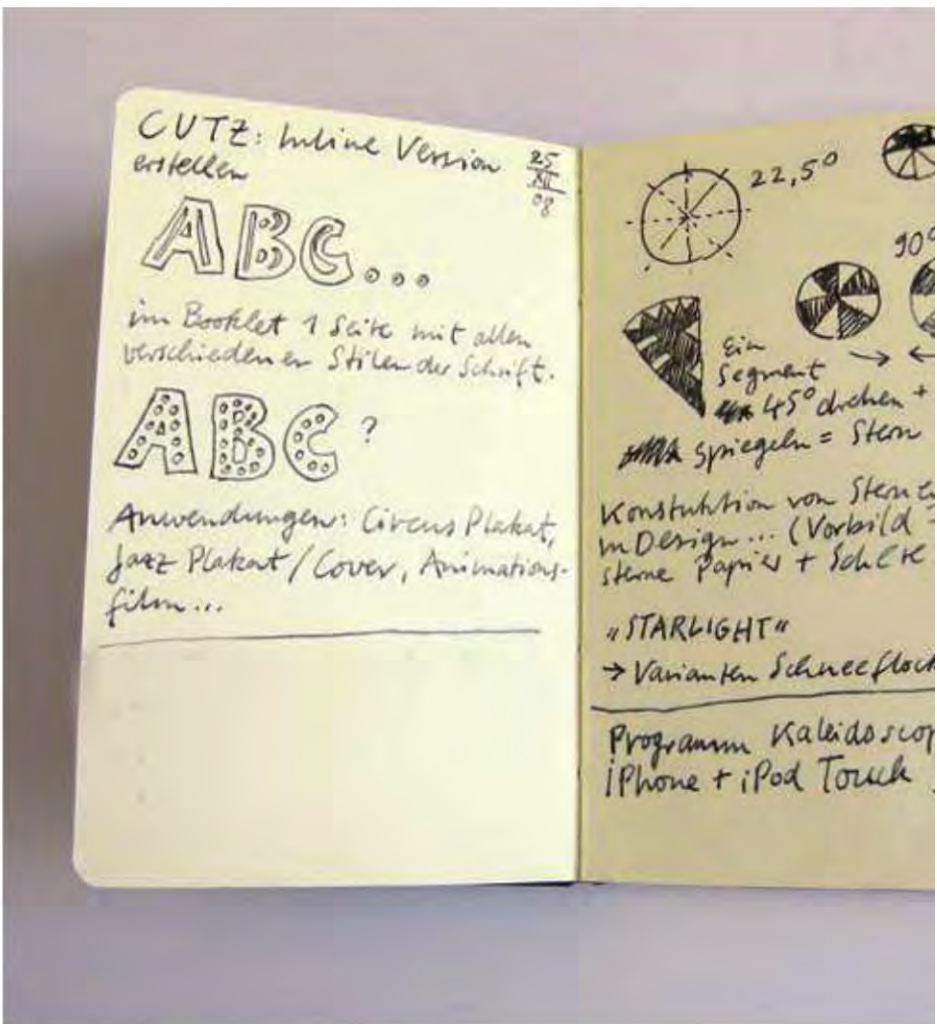 CUTZ: Inline Version
erstellen
25
XII
08
ABC...
im Booklet 1 Seite mit allen
verschiedenen Stilen der Schrift.
ABC ?
Anwendungen: Circus Plakat,
Jazz Plakat / Cover, Animations-
film...
22,5°
90°
Ein
Segment
45° drehen +
spiegeln = Stern
Konstuktion von Sterne
in Design... (Vorbild
sterne Papier + Schere
"STARLIGHT"
→ Varianten Schneeflock
Programm Kaleidoscop
iPhone + iPod Touch